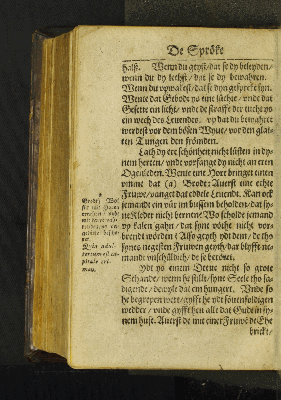 De Spröke
halß. Wenn du geyst/ dat se dy beleyden/
wenn du dy lechst/ dat se dy bewahren.
Wenn du upwakest/ dat se dyn gespreke syn.
Wente dat Gebodt ys eine Lüchte/ unde dat
Gesette ein licht/ unde de straffe der tucht ys
ein wech des Levendes. up dat du bewahret
werdest vor dem bösen Wyve/ vor den glat-
ten Tungen der frömden.
Lath dy ere schönheit nicht lüsten in dy-
nem herten/ unde vorfange dy nicht an eren
Ogenleden. Wente eine Hore bringet einen
umme dat (a) Brodt: Averst eine echte
Fruwe/ vanget dat eddele Levent. Kan ock
jemande ein vür im bussem beholden/ dat sy-
ne Kleder nicht bernen? Wo scholde jemand
up kalen gahn/ dat syne vöthe nicht vor-
brendt wörden? Also geyth ydt dem/ de tho
synes negesten Fruwen geyth/ dar blyfft ne-
mandt unschüldich/ de se beröret.
Ydt ys einem Deve nicht so grote
Schande/ wenn he stilt/ syne Seele tho sa-
digende/ dewyle dat em hungert. Unde so
he begrepen wert/ gyfft he ydt sövenfoldigen
wedder/ unde gyfft hen alle dat Gudt in sy-
nem huse. Averst de mit einer Fruwen de Ehe
brickt/